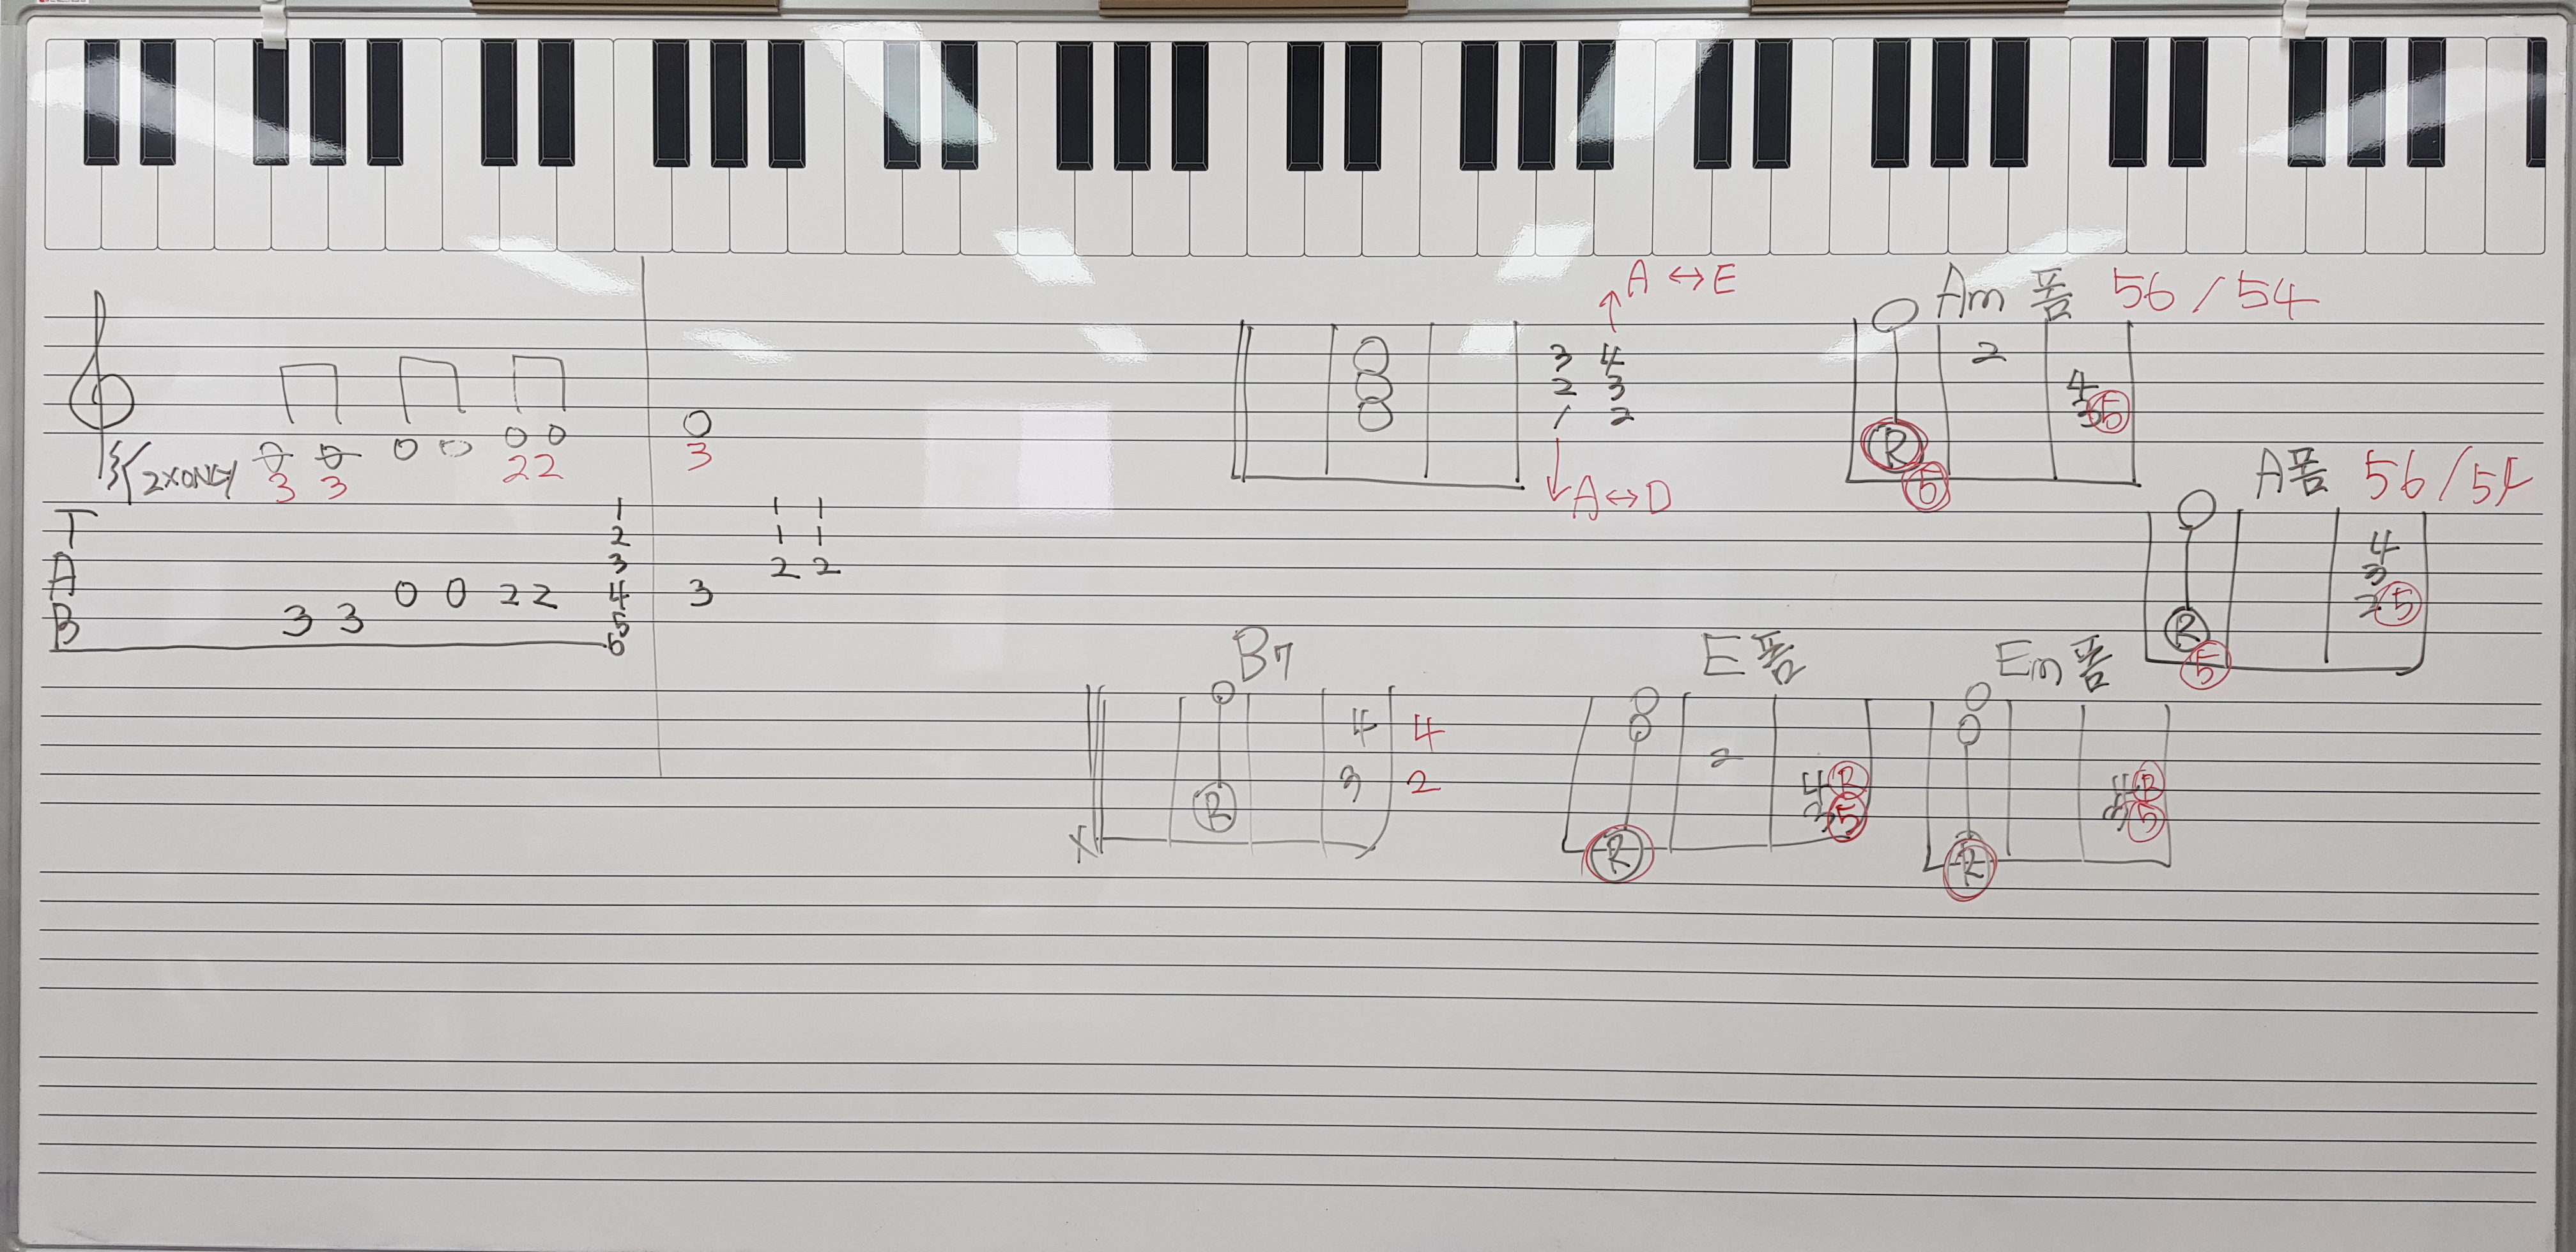 A ↔ E
Am 폼 56 / 54
3 4
2 3
1 2
A ↔ D
2
4
3 5
R
5
2XONLY
3 3 0 0 22
3
T
A
B
3 3 0 0 2 2
1
2
3
4
5
6
3
1 1
1 1
2 2
A폼 56 / 54
4
3
2 5
R
5
B7
4 4
3 2
R
X
E폼
2
4 R
3 5
R
Em폼
4 R
3 5
R